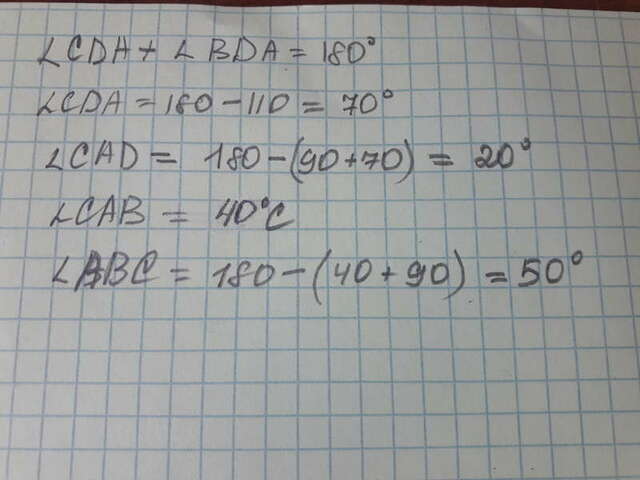 ∠CDA + ∠BDA = 180°
∠CDA = 180 - 110 = 70°
∠CAD = 180 - (90 + 70) = 20°
∠CAB = 40°C
∠ABC = 180 - (40 + 90) = 50°